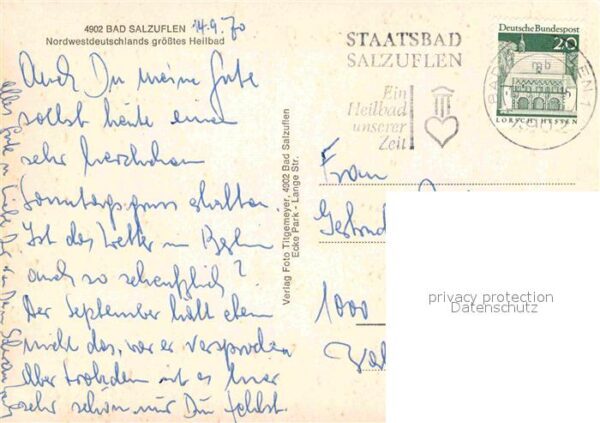 4902 BAD SALZUFLEN 14.9.70
Nordwestdeutschlands größtes Heilbad
Auch Du meine Gute
sollst heute einen
sehr herzlichen
Sonntagsgruss erhalten.
Ist das Wetter in Berlin
auch so scheußlich?
Der September hält eben
nicht das, was er versprochen
Aber trotzdem ist es hier
sehr schön nur Du fehlst.
alles Gute in Liebe Dir von Deiner
Verlag Foto Titgemeyer, 4902 Bad Salzuflen
Ecke Park - Lange Str.
STAATSBAD
SALZUFLEN
Ein
Heilbad
unserer
Zeit
Deutsche Bundespost
20
LORSCH · HESSEN
BAD
EN 1
mb
4902
Frau
1000
privacy protection
Datenschutz